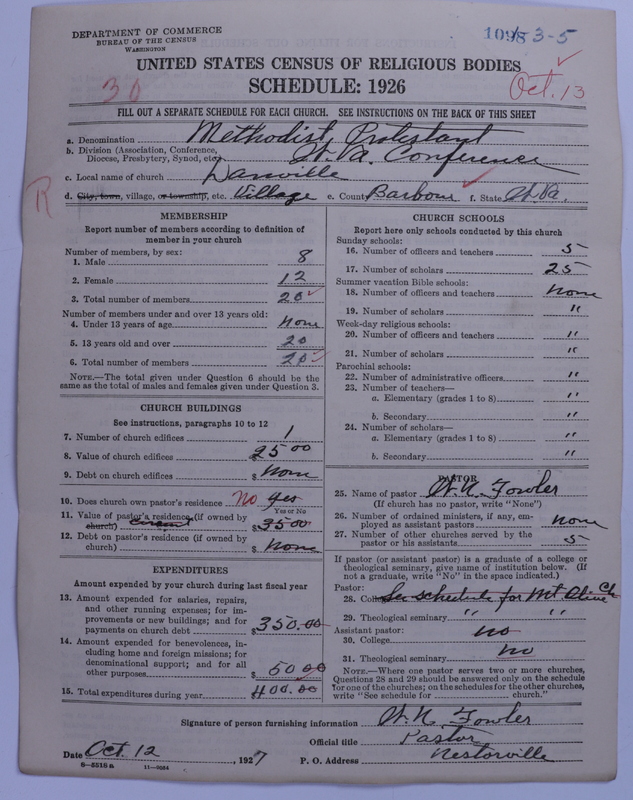 DEPARTMENT OF COMMERCE
BUREAU OF THE CENSUS
WASHINGTON
109 3-5
UNITED STATES CENSUS OF RELIGIOUS BODIES
SCHEDULE: 1926
30
Oct. 13
FILL OUT A SEPARATE SCHEDULE FOR EACH CHURCH. SEE INSTRUCTIONS ON THE BACK OF THIS SHEET
a. Denomination Methodist Protestant
b. Division (Association, Conference, Diocese, Presbytery, Synod, etc.) W.Va. Conference
c. Local name of church Danville
R
d. City, town, village, or township, etc. Village e. County Barbour f. State W.Va.
MEMBERSHIP
Report number of members according to definition of
member in your church
Number of members, by sex:
1. Male 8
2. Female 12
3. Total number of members 20
Number of members under and over 13 years old:
4. Under 13 years of age None
5. 13 years old and over 20
6. Total number of members 20
NOTE.—The total given under Question 6 should be the
same as the total of males and females given under Question 3.
CHURCH BUILDINGS
See instructions, paragraphs 10 to 12
7. Number of church edifices 1
8. Value of church edifices $ 2500
9. Debt on church edifices $ None
10. Does church own pastor's residence No yes
Yes or No
11. Value of pastor's residence (if owned by
church) circuit $ 3500
12. Debt on pastor's residence (if owned by
church) $ None
EXPENDITURES
Amount expended by your church during last fiscal year
13. Amount expended for salaries, repairs,
and other running expenses; for im-
provements or new buildings; and for
payments on church debt $ 350.00
14. Amount expended for benevolences, in-
cluding home and foreign missions; for
denominational support; and for all
other purposes $ 50.00
15. Total expenditures during year $ 400.00
CHURCH SCHOOLS
Report here only schools conducted by this church
Sunday schools:
16. Number of officers and teachers 5
17. Number of scholars 25
Summer vacation Bible schools:
18. Number of officers and teachers None
19. Number of scholars "
Week-day religious schools:
20. Number of officers and teachers "
21. Number of scholars "
Parochial schools:
22. Number of administrative officers "
23. Number of teachers—
a. Elementary (grades 1 to 8) "
b. Secondary "
24. Number of scholars—
a. Elementary (grades 1 to 8) "
b. Secondary "
PASTOR
25. Name of pastor W.N. Fowler
(If church has no pastor, write "None")
26. Number of ordained ministers, if any, em-
ployed as assistant pastors None
27. Number of other churches served by the
pastor or his assistants 5
If pastor (or assistant pastor) is a graduate of a college or
theological seminary, give name of institution below. (If
not a graduate, write "No" in the space indicated.)
Pastor:
28. College See schedule for Mt Olive Ch
29. Theological seminary " "
Assistant pastor:
30. College no
31. Theological seminary no
NOTE.—Where one pastor serves two or more churches,
Questions 28 and 29 should be answered only on the schedule
for one of the churches; on the schedules for the other churches,
write "See schedule for church."
Signature of person furnishing information W.N. Fowler
Official title Pastor
Date Oct. 12, 1927 P. O. Address Nestorville
8—5518a 11—9034